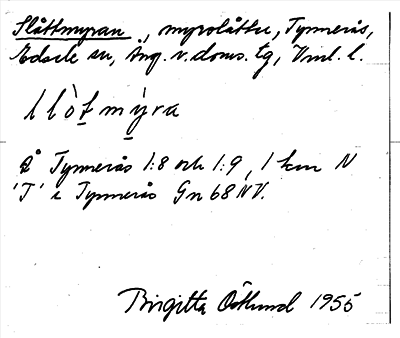 Slåttmyran, myrslåtter, Tynnerås,
Edsele sn, Ång. v. doms. tg, Vml. l.
På Tynnerås 1:8 och 1:9, 1 km N
'T' i Tynnerås Gn 68 NV.
Birgitta Östlund 1955